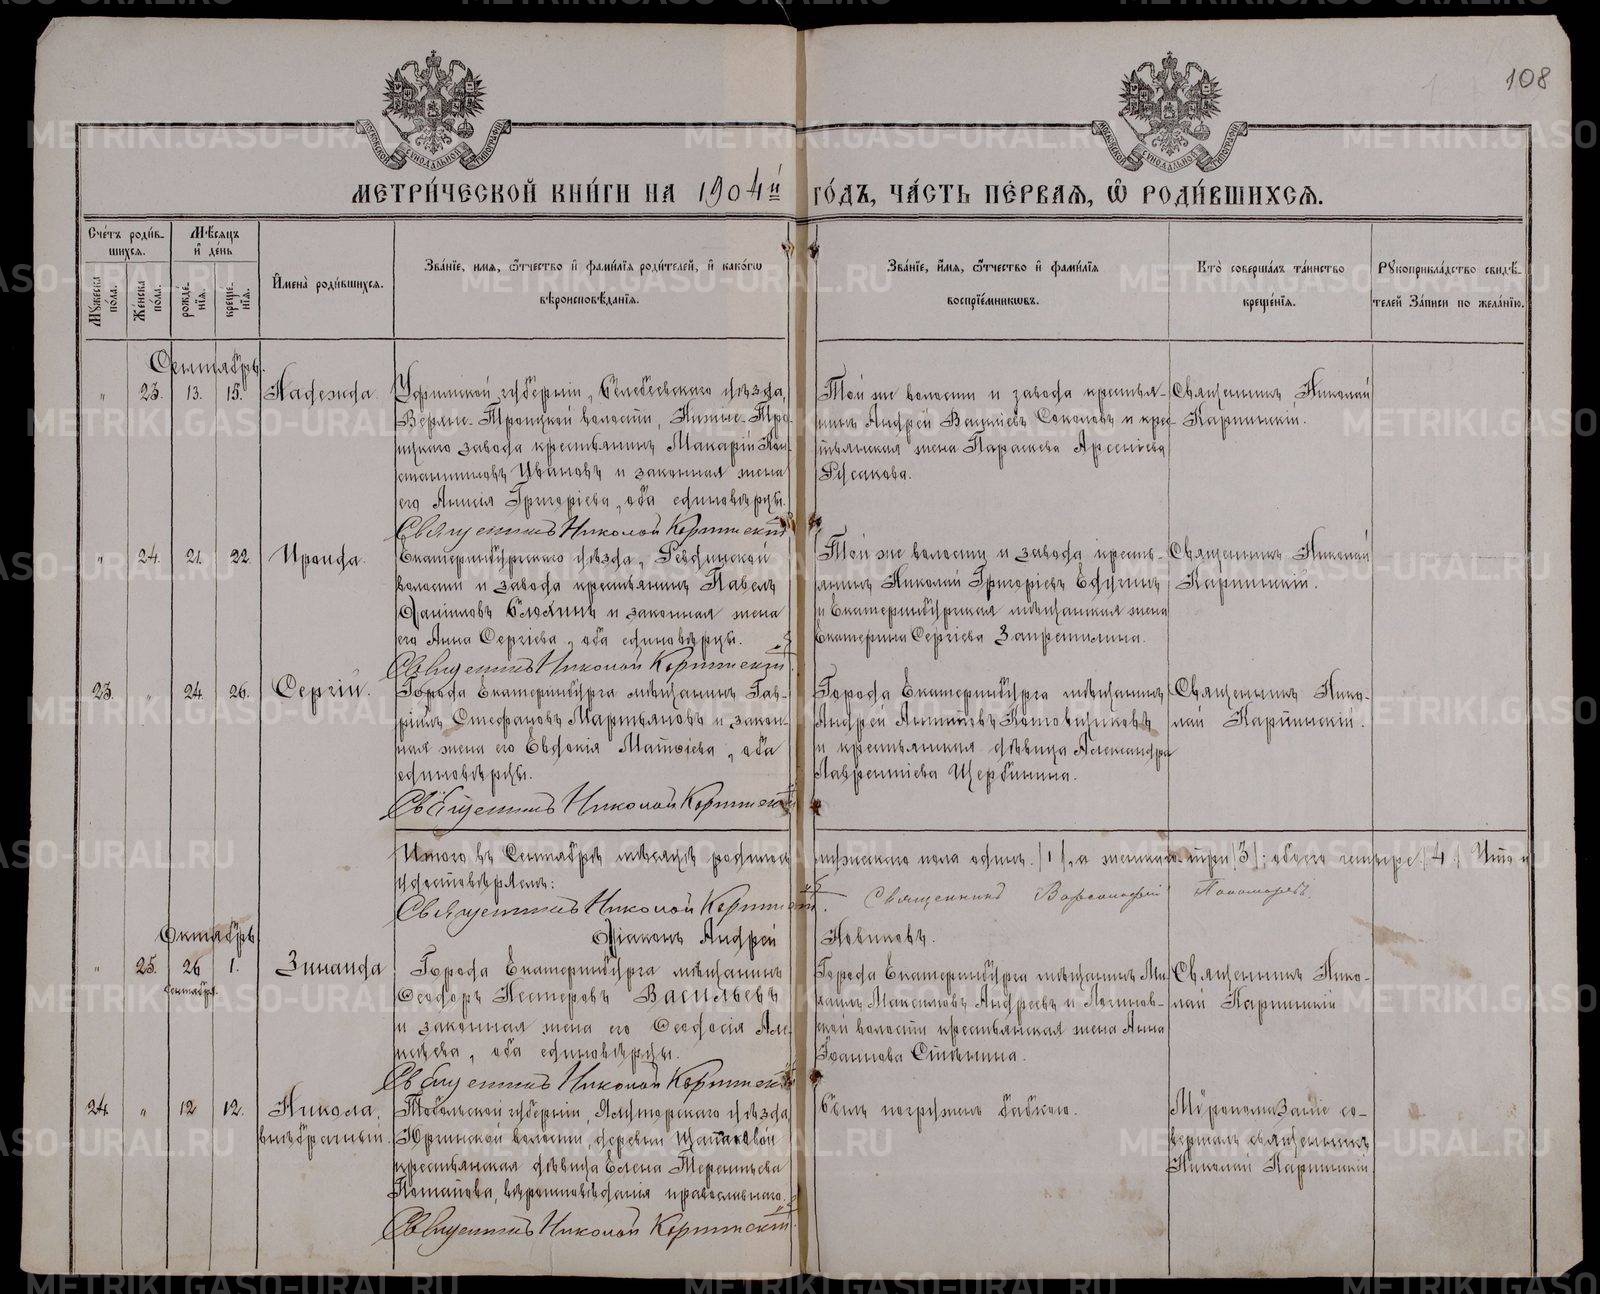 108
МЕТРИ́ЧЕСКОЙ КНИ́ГИ НА 1904й ГО́ДЪ, ЧА́СТЬ ПЕ́РВАѦ, Ѿ РОДИ́ВШИХСѦ.
Сче́тъ роди́в-
шихся.
Мѣ́сяцъ
и҆ де́нь
Мꙋ́жеска
по́ла.
Же́нска
по́ла.
рожде́-
нїѧ.
креще́-
нїѧ.
И҆мена̀ роди́вшихсѧ.
Зва́нїе, и҆мѧ, ѻ҆́тчество и҆ фами́лїѧ роди́телей, и҆ како́гѡ
вѣроисповѣ́данїѧ.
Зва́нїе, и҆́мѧ, ѻ҆́тчество и҆ фами́лїѧ
воспрїе́мникѡвъ.
Кто̀ соверша́лъ та́инство
креще́нїѧ.
Рꙋкоприкла́дство свидѣ́-
телей за́писи по жела́нїю.
Сентябрь.
" 23. 13. 15. Надежда.
Уфимской губернiи, Белебеевскаго уѣзда,
Верхне-Троицкой волости, Нижне-Тро
ицкаго завода крестьянинъ Макарiй Кон
стантиновъ Ивановъ и законная жена
его Анисiя Григорiева, оба единовѣрцы.
Священникъ Николай Карпинскiй
Той же волости и завода крестья-
нинъ Андрей Соколовъ и кре
стьянская жена Параскева Арсенiева
Русакова.
Священникъ Николай
Карпинскiй.
" 24. 21. 22. Ираида.
Екатеринбургскаго уѣзда, Ревдинской
волости и завода крестьянинъ Павелъ
Данiиловъ Блохинъ и законная жена
его Анна Сергiева, оба единовѣрцы.
Священникъ Николай Карпинскiй.
Той же волости и завода кресть-
янинъ Николай Григорiевъ
и Екатеринбургская мѣщанская жена
Екатерина Сергiева
Священникъ Николай
Карпинскiй.
23. " 24. 26. Сергiй.
Города Екатеринбурга мѣщанинъ Гав-
рiилъ Стефановъ Мартьяновъ и закон-
ная жена его Евдокiя Матѳiева, оба
единовѣрцы.
Священникъ Николай Карпинскiй
Города Екатеринбурга мѣщанинъ
Андрей
и крестьянская дѣвица Александра
Лаврентiева Щербинина.
Священникъ Нико-
лай Карпинскiй.
Итого въ Сентябрѣ мѣсяцѣ родилось мужескаго пола одинъ (1), а женскаго три (3); обоего четыре (4). Что и
удостовѣряемъ:
Священникъ Николай Карпинскiй. Священникъ Варсонофiй Пономаревъ
Дiаконъ Андрей Новиковъ.
Октябрь.
" 25. 26 Сентября. 1. Зинаида
Города Екатеринбурга мѣщанинъ
Ѳеодоръ Нестеровъ Васильевъ
и законная жена его Ѳеодосiя Але
ксѣева, оба единовѣрцы.
Священникъ Николай Карпинскiй
Города Екатеринбурга мѣщанинъ Ми
хаилъ Максимовъ Андреевъ и Логинов-
ской волости крестьянская жена Анна
Iоаннова
Священникъ Нико-
лай Карпинскiй
24. " 12 12. Никола,
внѣбрачный.
Тобольской губернiи, Ялуторскаго уѣзда,
Юргинской волости, деревни
крестьянская дѣвица Елена Терентьева
вѣроисповѣданiя православнаго.
Священникъ Николай Карпинскiй.
Былъ погруженъ бабкою.
Мѵропомазанiе со-
вершалъ священникъ
Николай Карпинскiй
METRIKI.GASO-URAL.RU